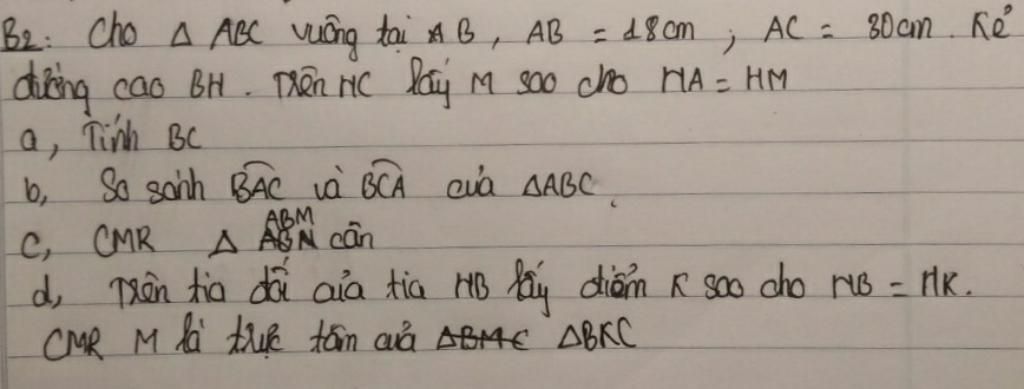 B2: Cho Δ ABC vuông tại B, AB = 18cm ; AC = 30cm. Kẻ
đường cao BH. Trên HC lấy M sao cho HA = HM
a, Tính BC
b, So sánh BAC và BCA của ΔABC.
c, CMR Δ ABM cân
d, Trên tia đối của tia HB lấy điểm K sao cho HB = HK.
CMR M là trực tâm của ΔBKC